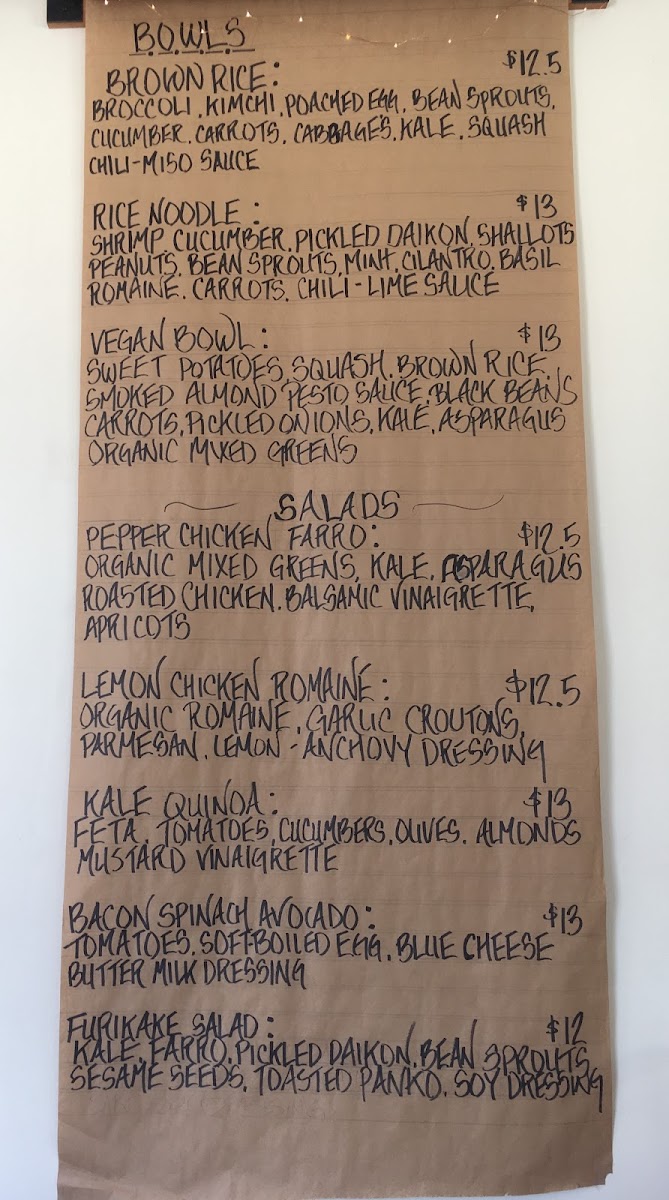 B.O.W.L.S
BROWN RICE: $12.5
BROCCOLI, KIMCHI, POACHED EGG, BEAN SPROUTS,
CUCUMBER, CARROTS, CABBAGES, KALE, SQUASH
CHILI-MISO SAUCE
RICE NOODLE: $13
SHRIMP, CUCUMBER, PICKLED DAIKON, SHALLOTS
PEANUTS, BEAN SPROUTS, MINT, CILANTRO, BASIL
ROMAINE, CARROTS, CHILI-LIME SAUCE
VEGAN BOWL: $13
SWEET POTATOES, SQUASH, BROWN RICE,
SMOKED ALMOND PESTO SAUCE, BLACK BEANS
CARROTS, PICKLED ONIONS, KALE, ASPARAGUS
ORGANIC MIXED GREENS
SALADS
PEPPER CHICKEN FARRO: $12.5
ORGANIC MIXED GREENS, KALE, ASPARAGUS
ROASTED CHICKEN, BALSAMIC VINAIGRETTE,
APRICOTS
LEMON CHICKEN ROMAINE: $12.5
ORGANIC ROMAINE, GARLIC CROUTONS,
PARMESAN, LEMON-ANCHOVY DRESSING
KALE QUINOA: $13
FETA, TOMATOES, CUCUMBERS, OLIVES, ALMONDS
MUSTARD VINAIGRETTE
BACON SPINACH AVOCADO: $13
TOMATOES, SOFT-BOILED EGG, BLUE CHEESE
BUTTER MILK DRESSING
FURIKAKE SALAD: $12
KALE, FARRO, PICKLED DAIKON, BEAN SPROUTS
SESAME SEEDS, TOASTED PANKO, SOY DRESSING